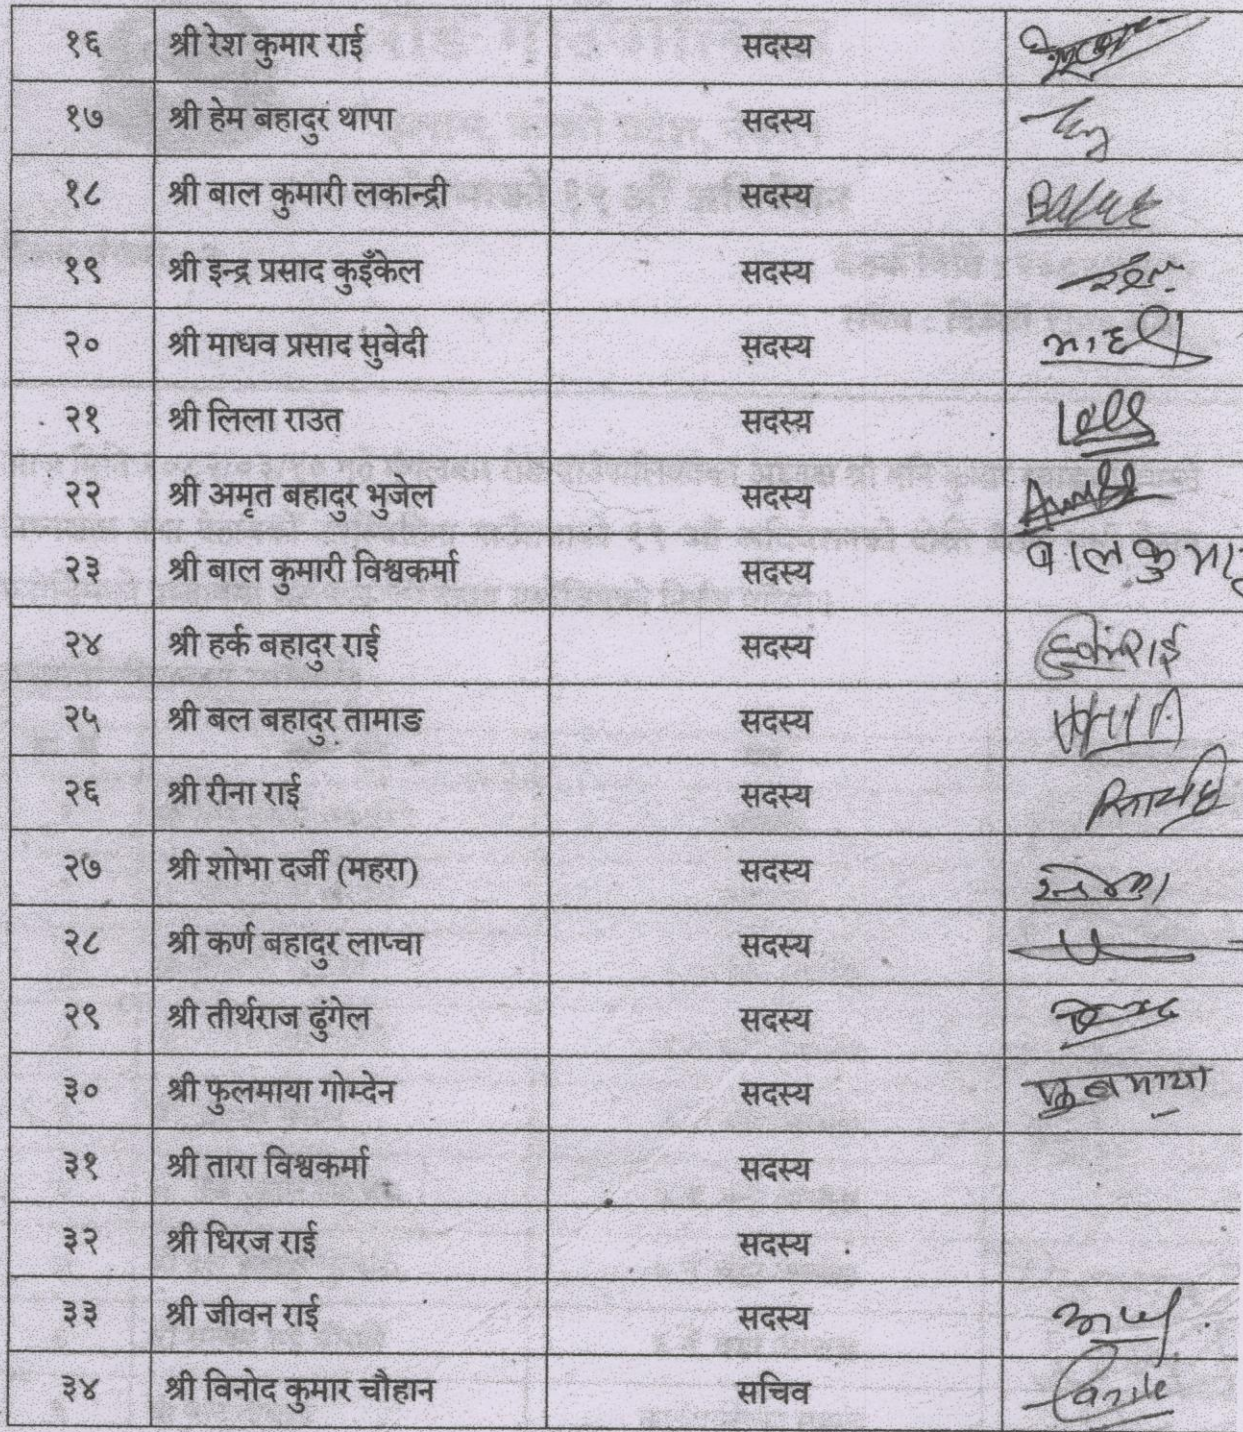 १६ श्री रेश कुमार राई सदस्य
१७ श्री हेम बहादुर थापा सदस्य
१८ श्री बाल कुमारी लकान्द्री सदस्य
१९ श्री इन्द्र प्रसाद कुइँकेल सदस्य
२० श्री माधव प्रसाद सुवेदी सदस्य
२१ श्री लिला राउत सदस्य
२२ श्री अमृत बहादुर भुजेल सदस्य
२३ श्री बाल कुमारी विश्वकर्मा सदस्य
२४ श्री हर्क बहादुर राई सदस्य
२५ श्री बल बहादुर तामाङ सदस्य
२६ श्री रीना राई सदस्य
२७ श्री शोभा दर्जी (महरा) सदस्य
२८ श्री कर्ण बहादुर लाप्चा सदस्य
२९ श्री तीर्थराज ढुंगेल सदस्य
३० श्री फुलमाया गोम्देन सदस्य फुलमाया
३१ श्री तारा विश्वकर्मा सदस्य
३२ श्री धिरज राई सदस्य
३३ श्री जीवन राई सदस्य
३४ श्री विनोद कुमार चौहान सचिव